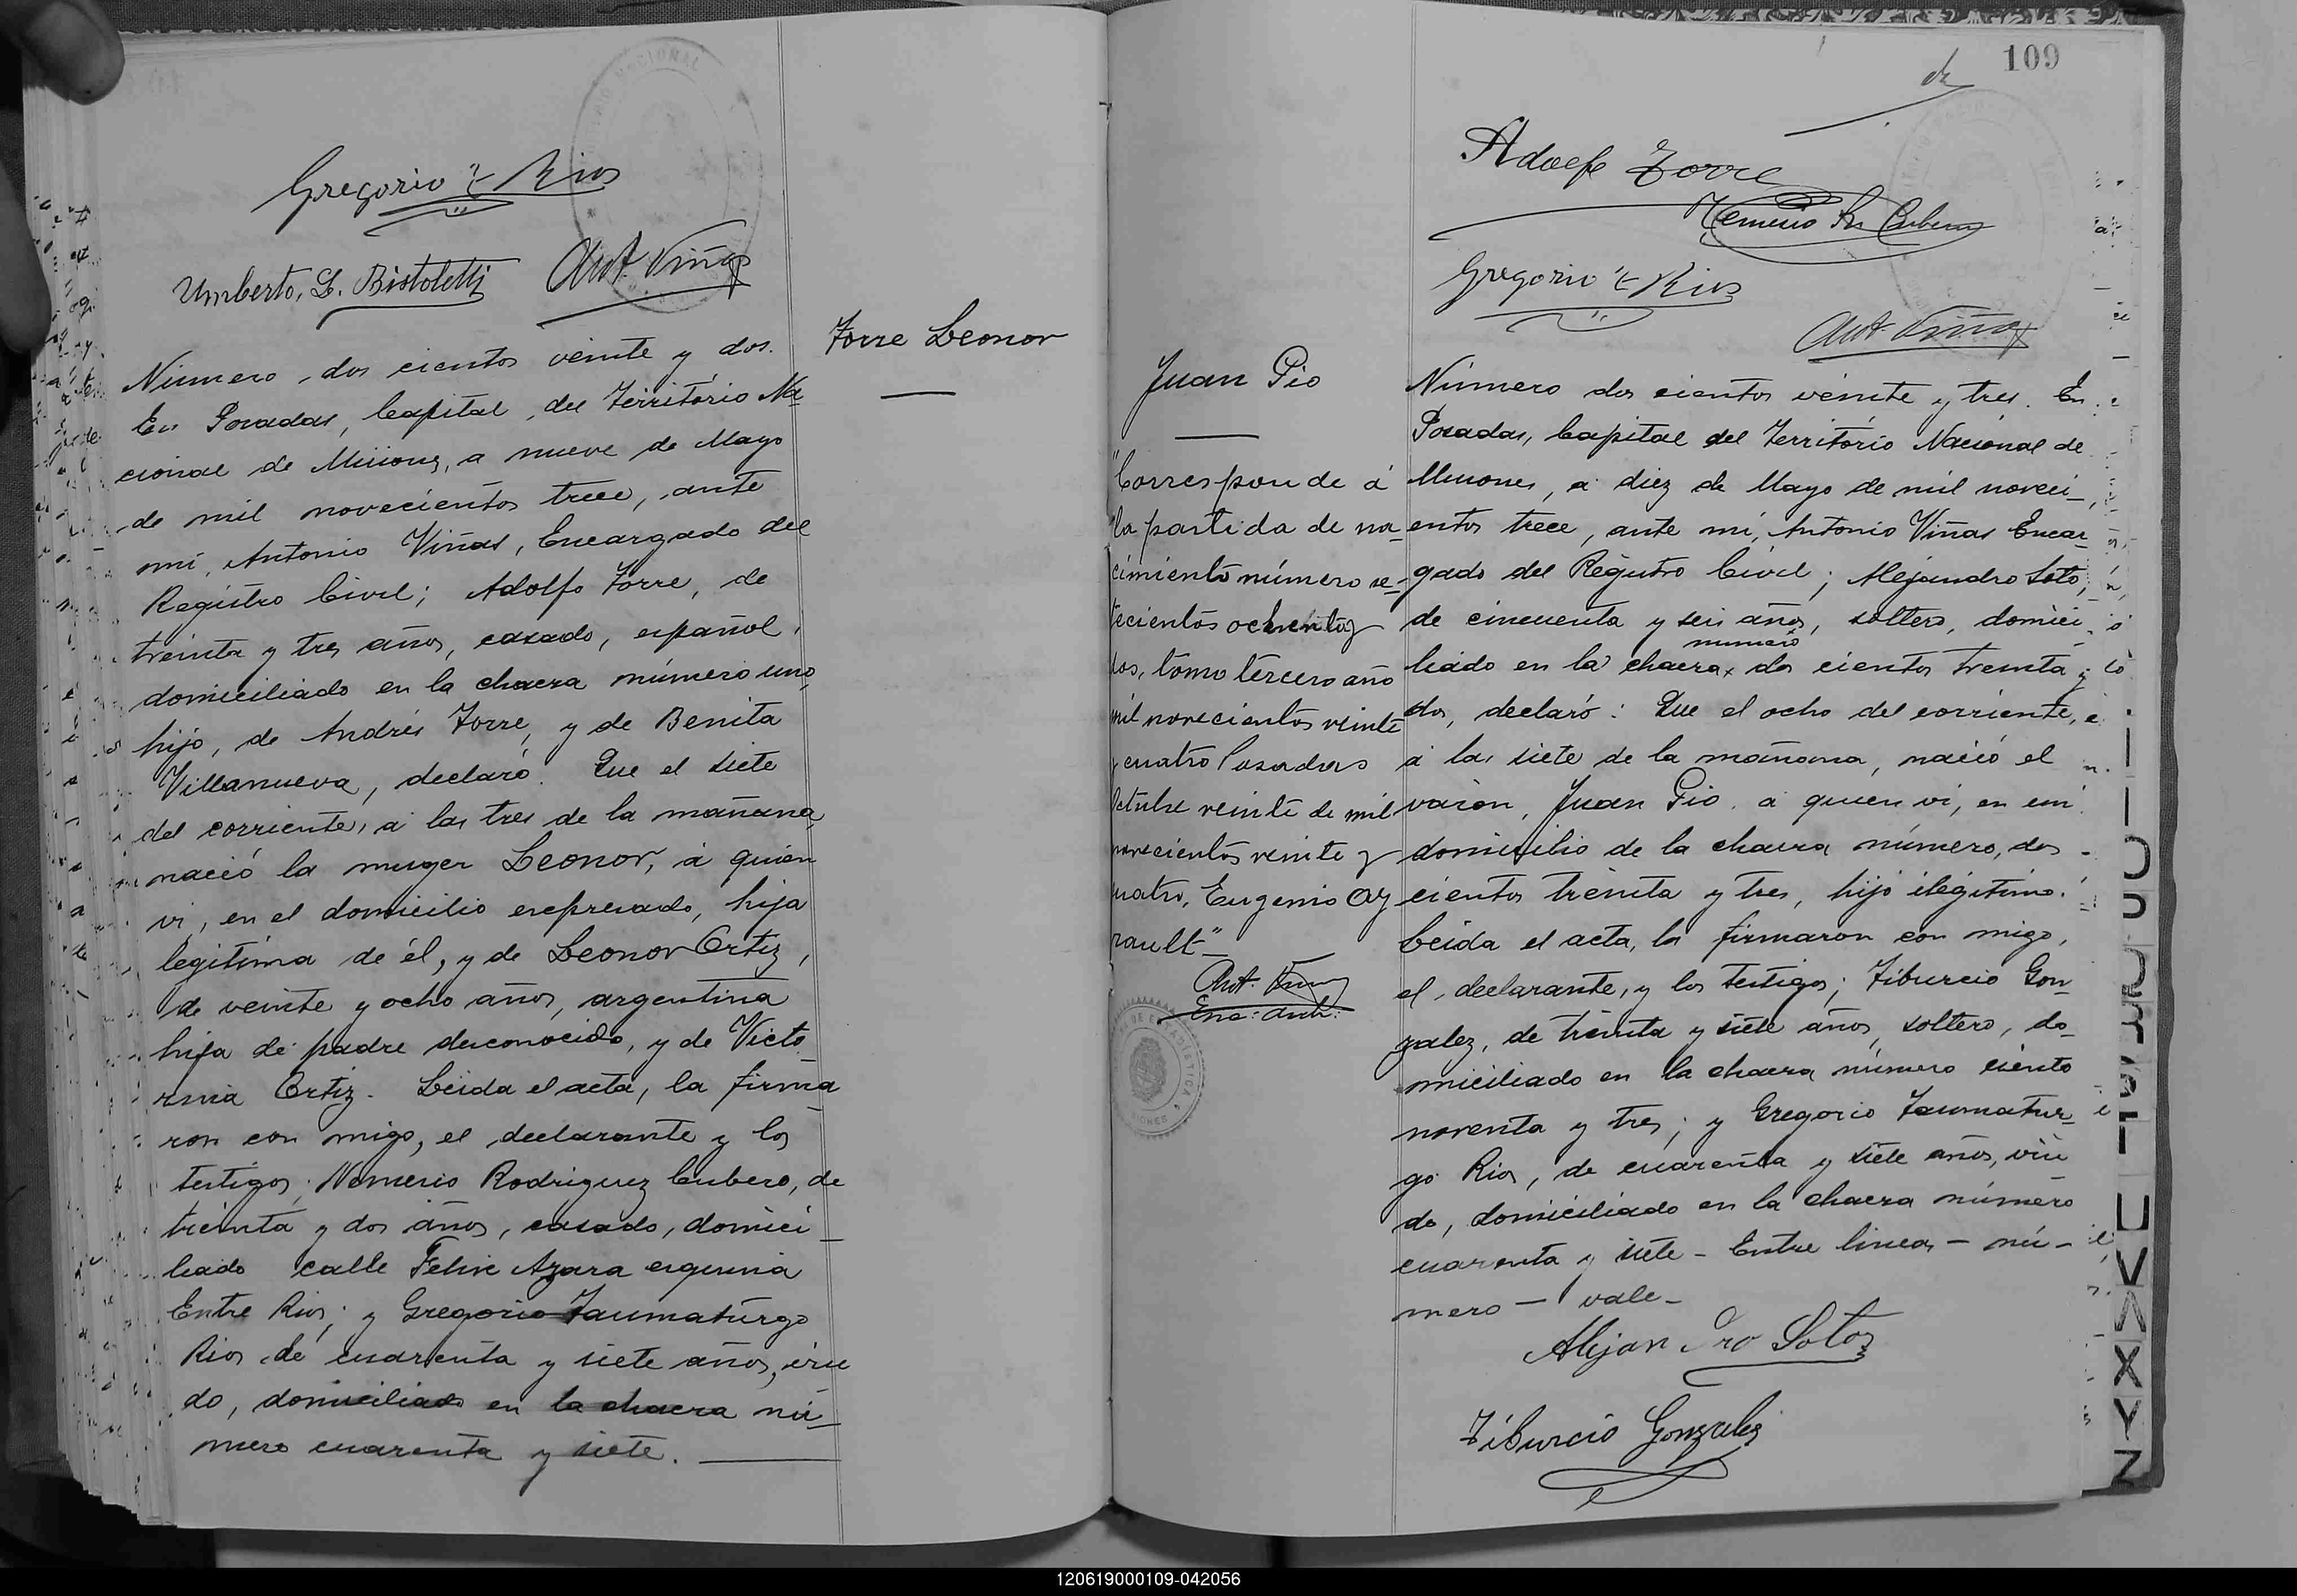 Gregorio T. Rios
Umberto, L. Bistoletti Ant. Viñas
Número, dos cientos veinte y dos.
En Posadas, Capital, del Territorio Na-
cional de Misiones, a nueve de Mayo
de mil novecientos trece, ante
mí, Antonio Viñas, Encargado del
Registro Civil; Adolfo Torre, de
treinta y tres años, casado, español,
domiciliado en la chacra número uno,
hijo, de Andrés Torre, y de Benita
Villanueva, declaró. Que el siete
del corriente, a las tres de la mañana,
nació la muger Leonor, á quien
vi, en el domicilio expresado, hija
legitima de él, y de Leonor Ortiz,
de veinte y ocho años, argentina
hija de padre desconocido, y de Victo-
rina Ortiz. Leida el acta, la firma-
ron con migo, el declarante y los
testigos; Nemesio Rodriguez Cubero, de
treinta y dos años, casado, domici-
liado calle Felix Azara esquina
Entre Rios; y Gregorio Taumaturgo
Rios, de cuarenta y siete años, viu
do, domiciliado en la chacra nú-
mero cuarenta y siete.
Torre Leonor
109
Adolfo Torre
Nemesio Rz Cubero
Gregorio T. Rios
Ant. Viñas
Juan Pio
"Corresponde á
"la partida de na-
cimiento número se-
tecientos ochenta y
dos, tomo tercero año
mil novecientos veinte
y cuatro Posadas
Octubre veinte de mil
novecientos veinte y
cuatro, Eugenio Ay
rault"
Ant. Viñas
Enc: Arch:
Número dos cientos veinte y tres. En
Posadas, Capital del Territorio Nacional de
Misiones, a diez de Mayo de mil noveci-
entos trece, ante mí, Antonio Viñas Encar-
gado del Registro Civil; Alejandro Soto,
de cincuenta y seis años, soltero, domici-
número
liado en la chacra x dos cientos treinta y
dos, declaró: Que el ocho del corriente,
á las siete de la mañana, nació el
varon, Juan Pio, a quien vi, en mi
domicilio de la chacra número, dos
cientos treinta y tres, hijo ilegitimo.
Leida el acta, la firmaron con migo,
el declarante, y los testigos; Tiburcio Gon-
zalez, de treinta y siete años, soltero, do-
miciliado en la chacra número ciento
noventa y tres; y Gregorio Taumatur-
go Rios, de cuarenta y siete años, viu
do, domiciliado en la chacra número
cuarenta y siete - Entre lineas - nú-
mero - vale -
Alejandro Soto
Tiburcio Gonzalez
V
X
Y
Z
120619000109-042056